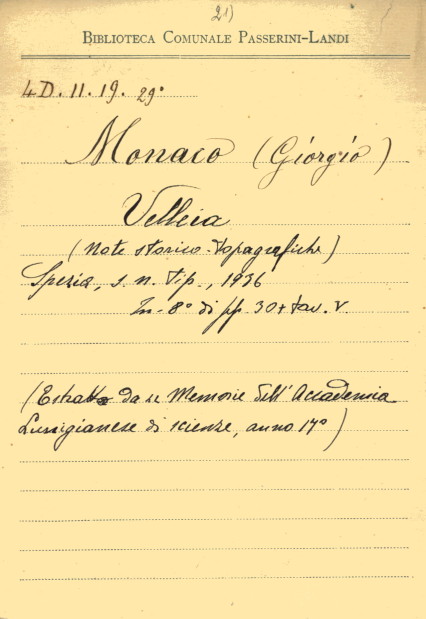 21)
BIBLIOTECA COMUNALE PASSERINI-LANDI
4D. 11. 19. 29°
Monaco (Giorgio)
Velleia
(Note storico-topografiche)
Spezia, s. n. tip., 1936
In-8° di pp. 30 + tav. V.
(Estratto da le Memorie dell'Accademia
Lunigianese di scienze, anno 17°)